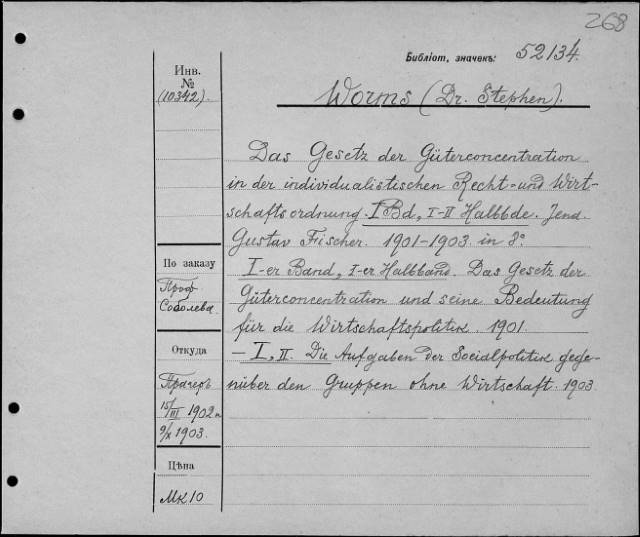 268
Библіот. значекъ: 52134.
Инв.
№
(10342).
Worms (Dr. Stephen).
Das Gesetz der Güterconcentration
in der individualistischen Recht- und Wirt-
schaftsordnung. I Bd, I-II Halbbde. Jena.
Gustav Fischer. 1901-1903. in 8°.
По заказу
Проф.
Соболева.
I-er Band, I-er Halbband. Das Gesetz der
Güterconcentration und seine Bedeutung
für die Wirtschaftspolitik. 1901.
Откуда
Прагеръ
15/III 1902 и
9/X 1903.
— I, II. Die Aufgaben der Socialpolitik gege-
nüber den Gruppen ohne Wirtschaft. 1903
Цѣна
Мк 10